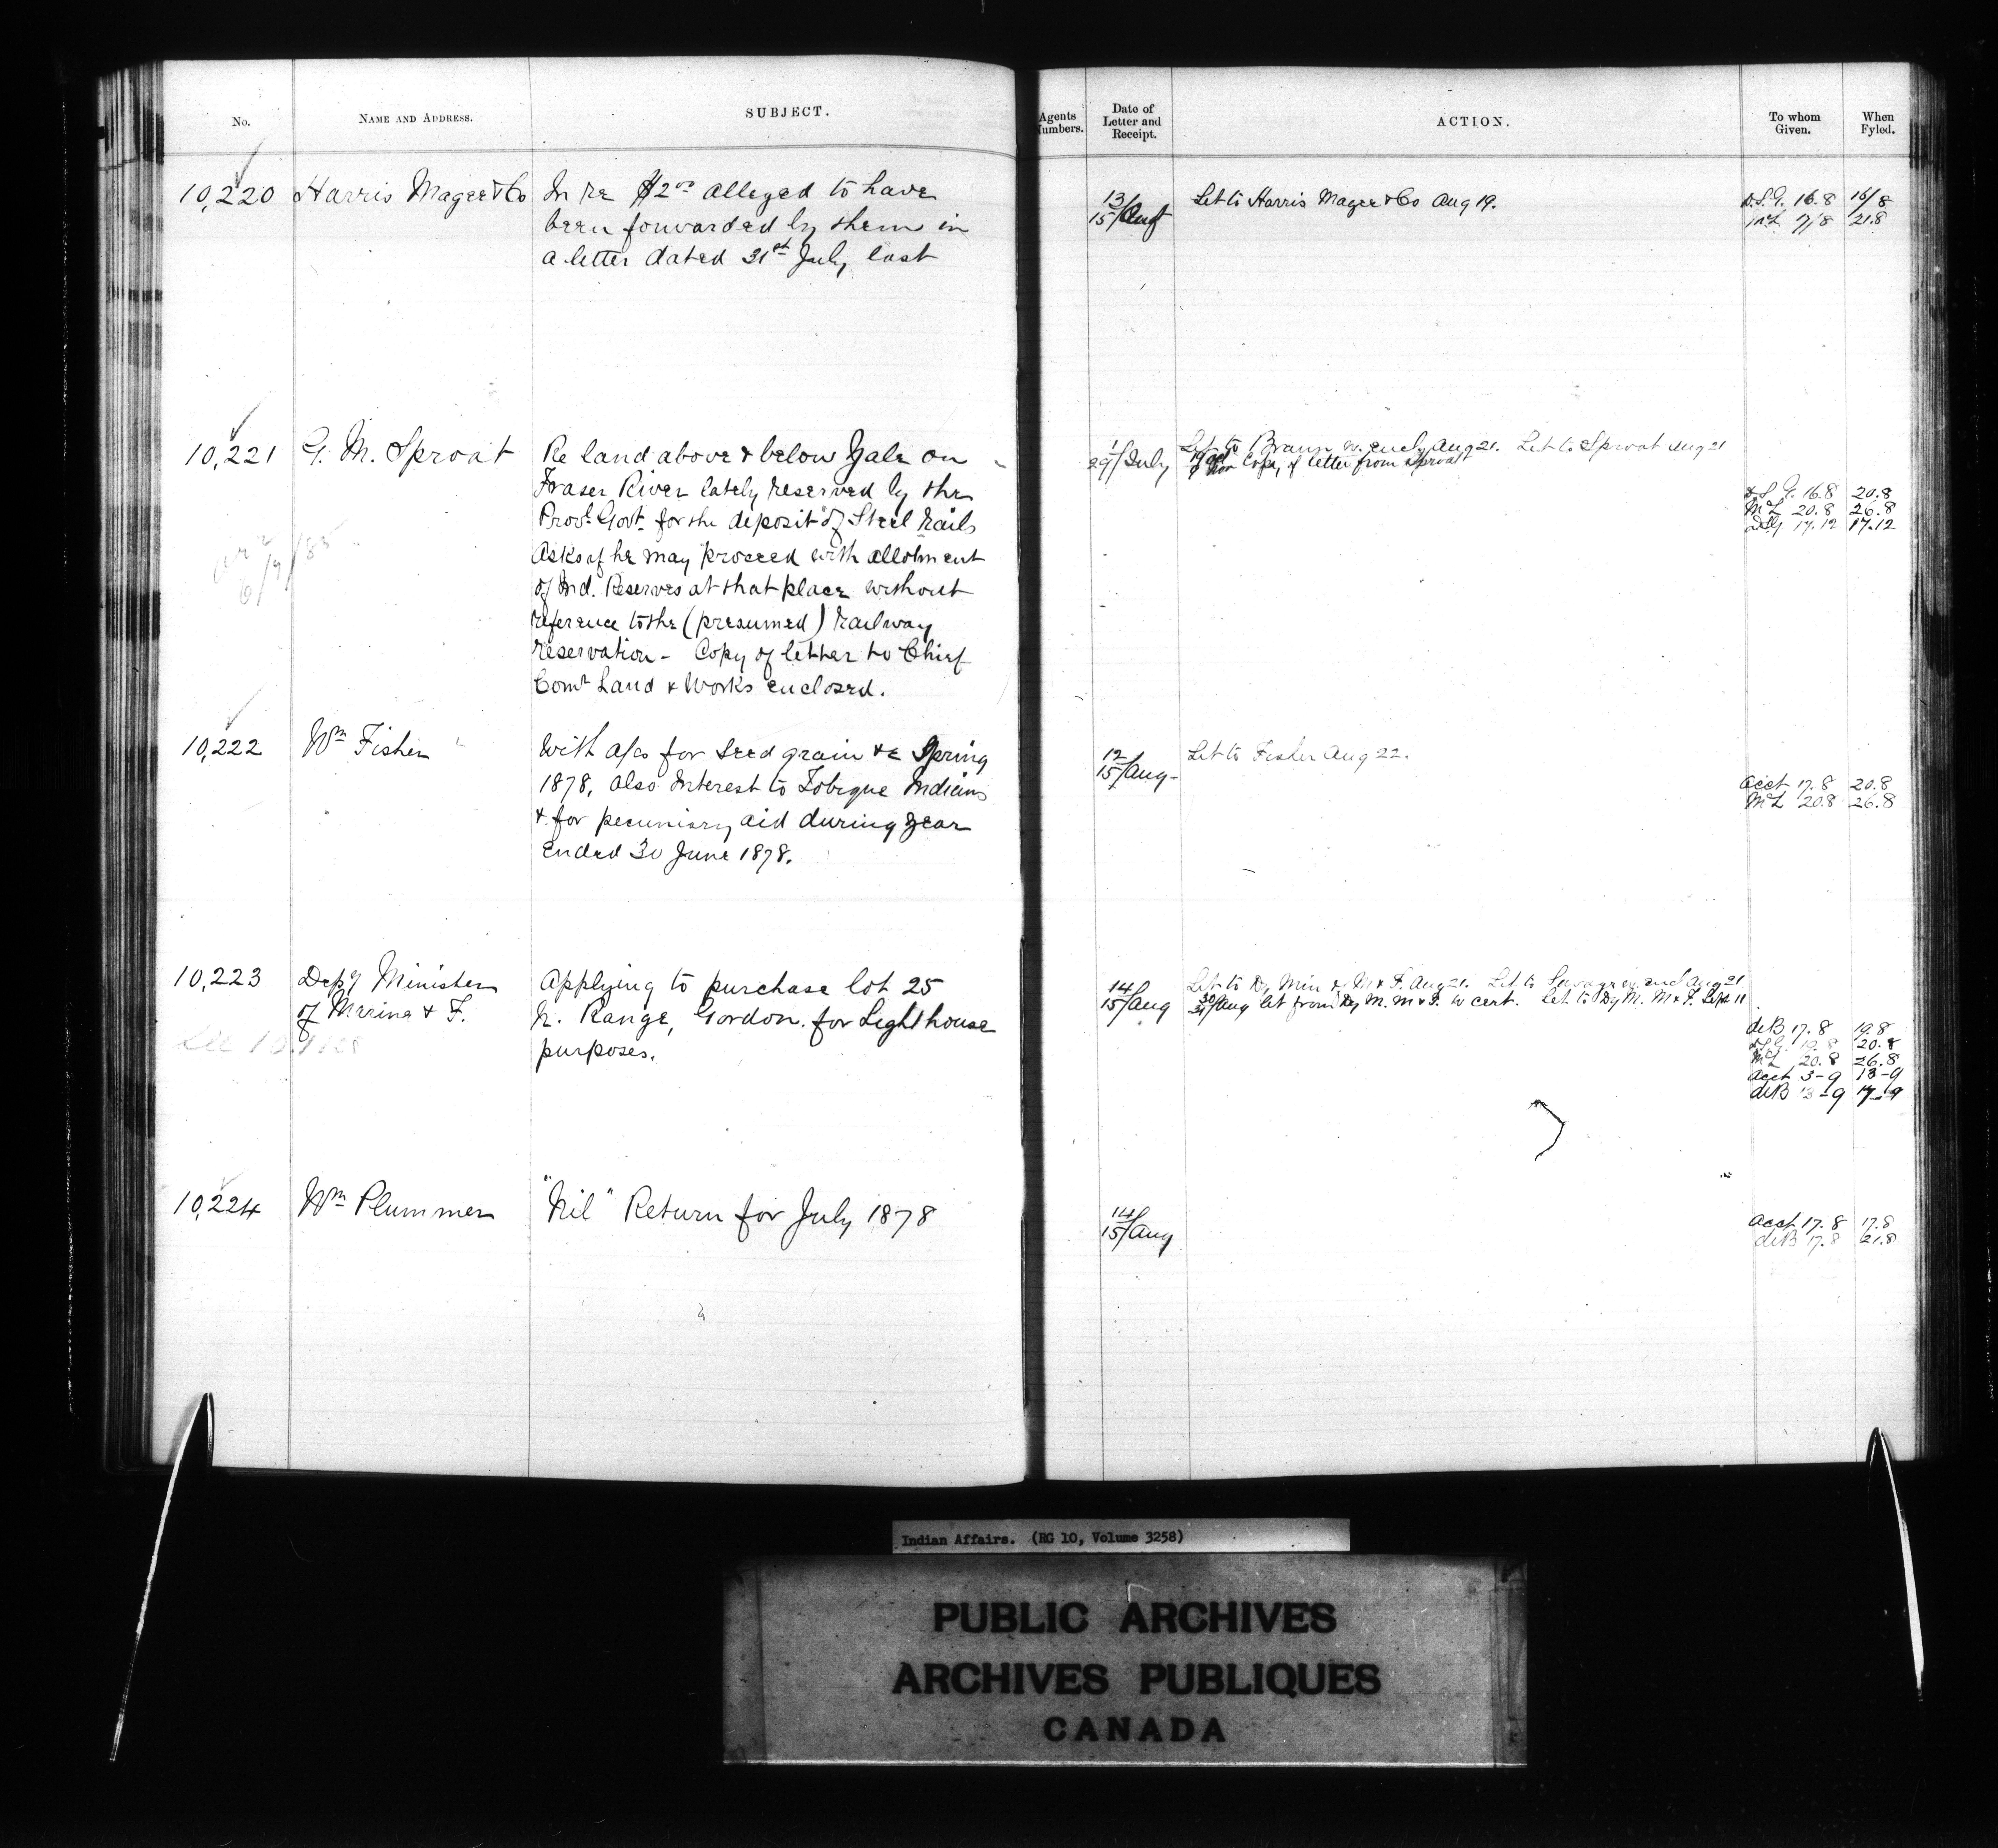 No.
NAME AND ADDRESS.
SUBJECT.
Agents
Numbers.
Date of
Letter and
Receipt.
ACTION.
To whom
Given.
When
Fyled.
10,220
Harris Magee & Co
In re $2.00 alleged to have
been forwarded by them in
a letter dated 31st July last
13/
15/Aug
Let to Harris Magee & Co Aug 19.
16.8 16/8
7/8 21.8
10,221
G. M. Sproat
Re land above & below Yale on
Fraser River lately reserved by the
Provl. Govt. for the deposit of Steel Rails
Asks if he may proceed with allotment
of Ind. Reserves at that place without
reference to the (presumed) railway
reservation - Copy of letter to Chief
Comr Land & Works enclosed.
29/July
Let to Braun w. encls Aug 21. Let to Sproat Aug 21
Copy of letter from Sproat
16.8 20.8
McL 20.8 26.8
17.12 17.12
10,222
Wm Fisher
With a/cs for Seed grain &c Spring
1878, also Interest to Tobique Indians
& for pecuniary aid during year
ended 30 June 1878.
12/
15/Aug-
Let to Fisher Aug 22.
Acct 17.8 20.8
McL 20.8 26.8
10,223
Depy Minister
of Marine & F.
Applying to purchase lot 25
N. Range, Gordon. for Lighthouse
purposes.
14/
15/Aug
Let to Dy Min of M & F. Aug 21. Let to w. encl Aug 21
30/
31/Aug let from Dy M. M & F. w cert. Let to Dy M. M & F. Sept 11
deB 17.8 19.8
19.8 20.8
McL 20.8 26.8
Acct 3-9 13-9
deB 13-9 17-9
10,224
Wm Plummer
"Nil" Return for July 1878
14/
15/Aug
Acct 17.8 17.8
deB 17.8 21.8
Indian Affairs. (RG 10, Volume 3258)
PUBLIC ARCHIVES
ARCHIVES PUBLIQUES
CANADA